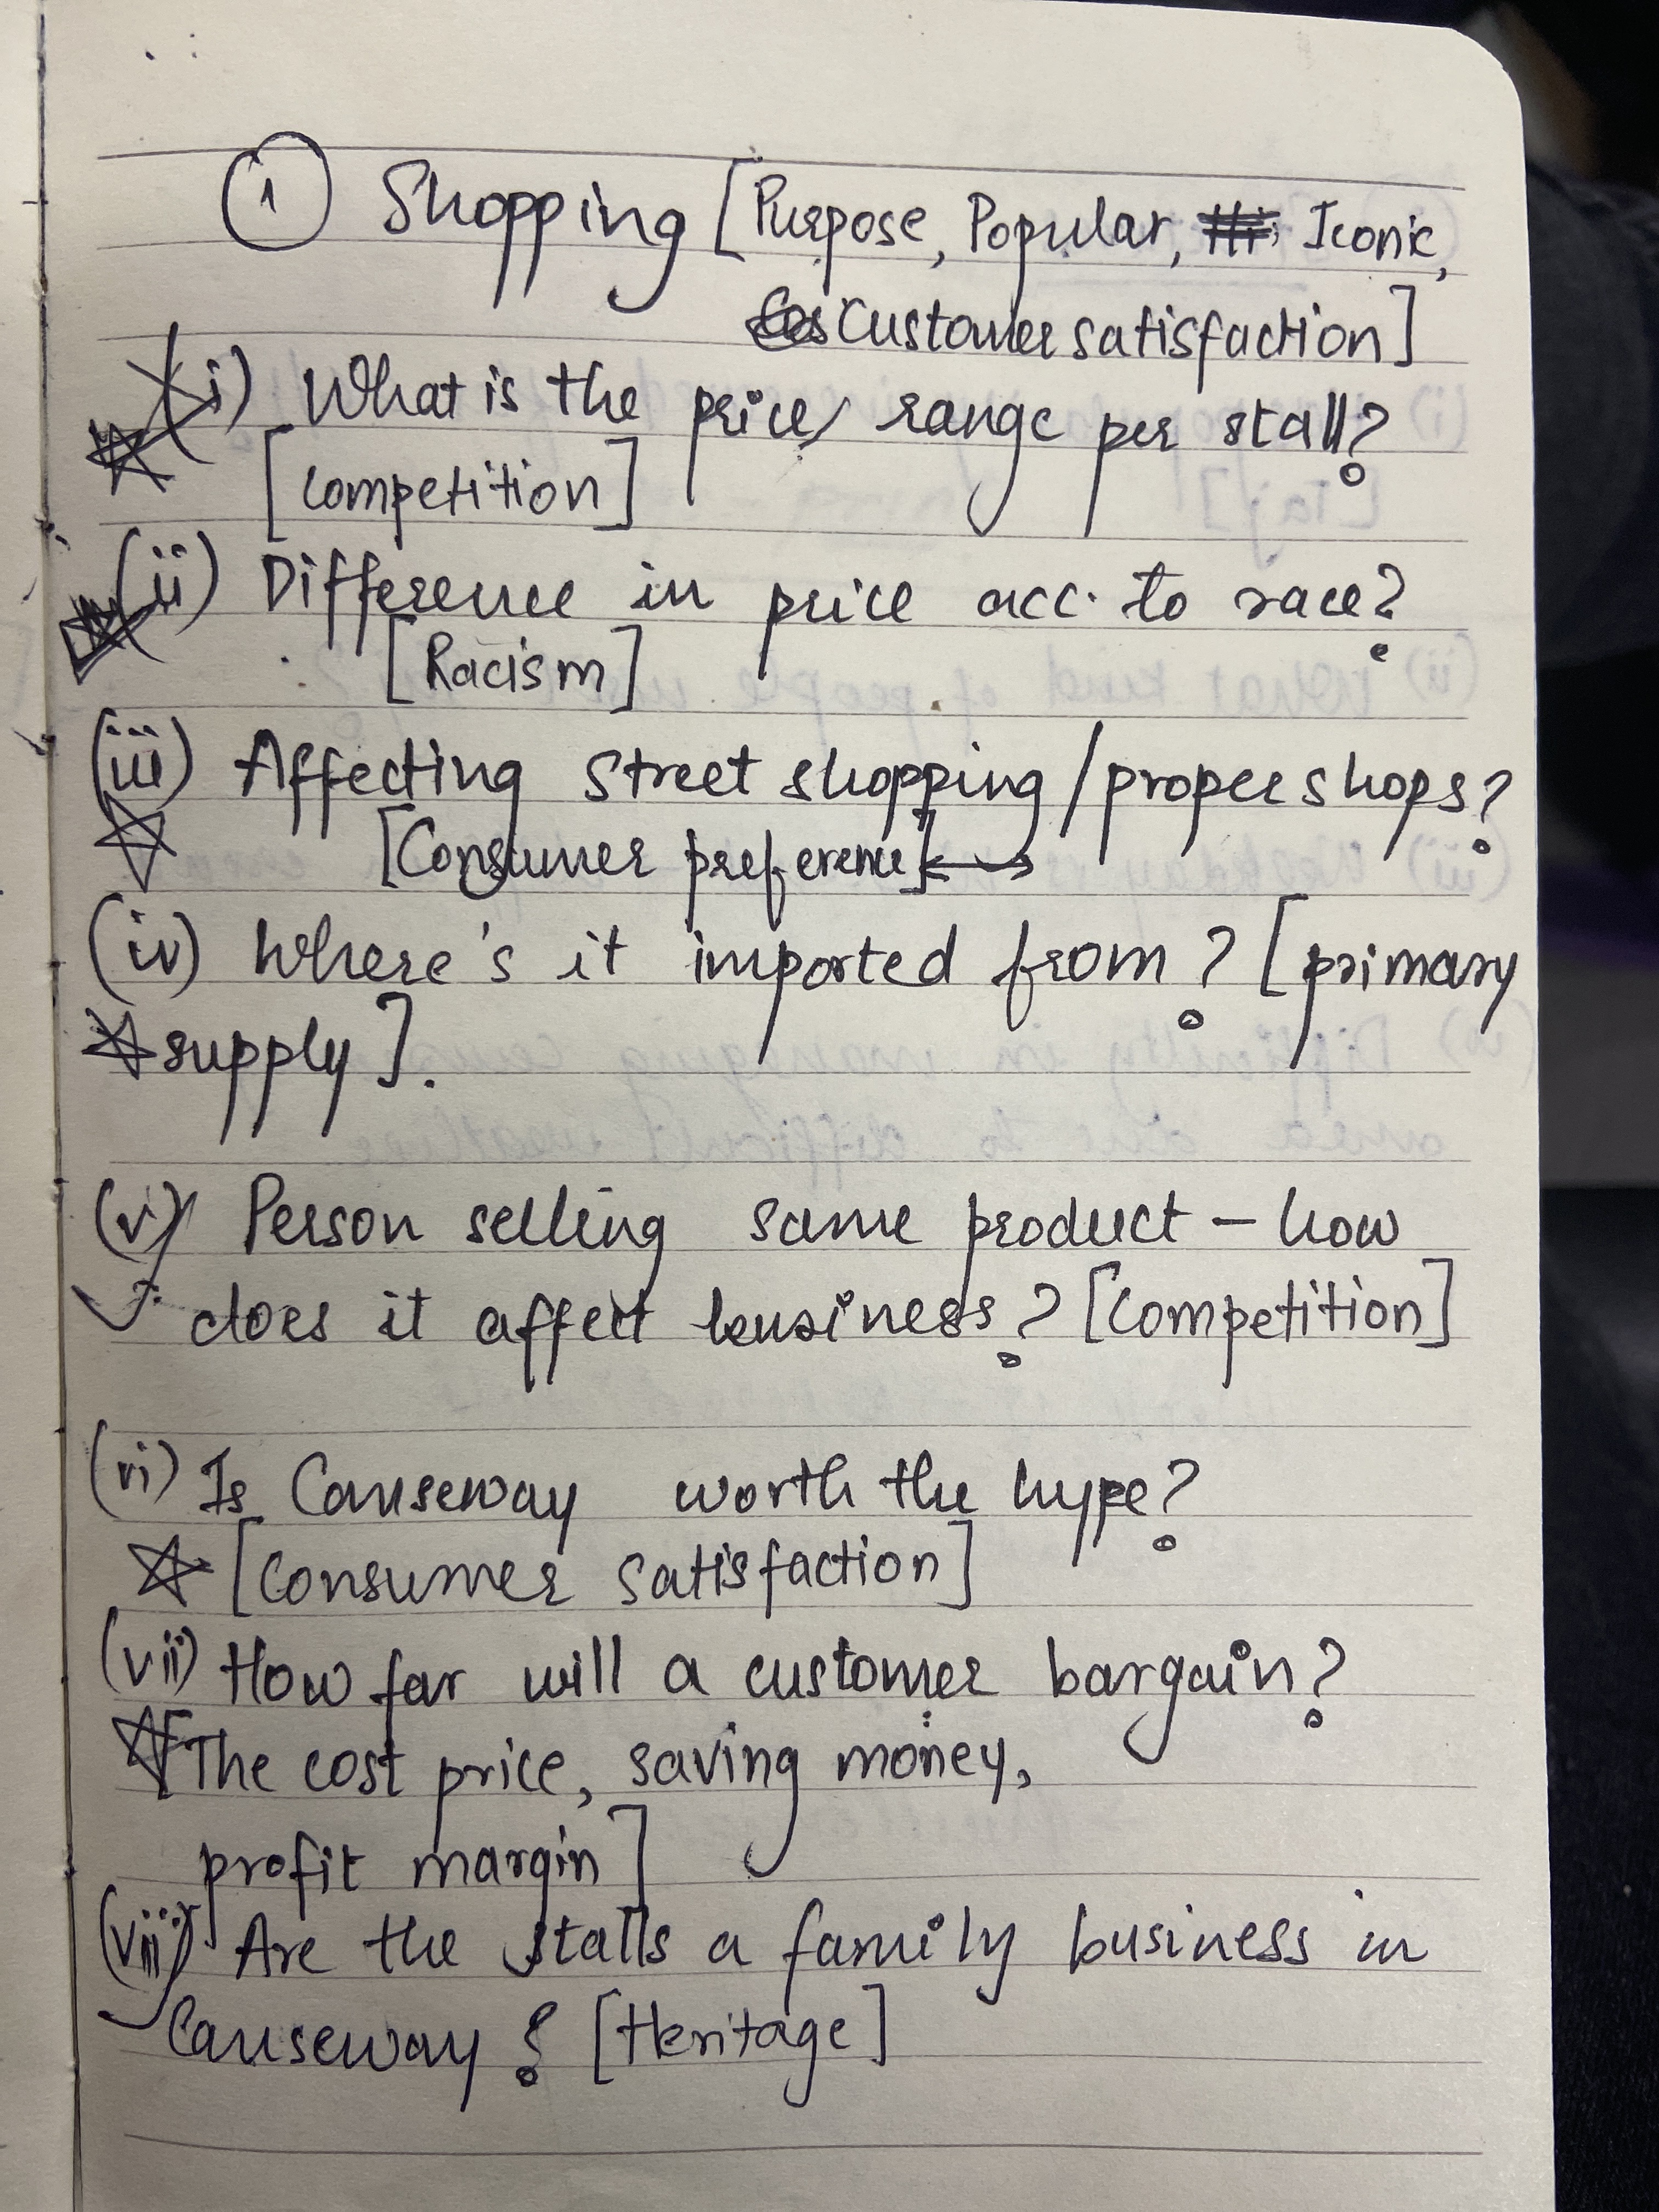 1 Shopping [Purpose, Popular, Iconic,
Customer satisfaction]
(i) What is the price/ range per stall?
[Competition]
(ii) Difference in price acc. to race?
[Racism]
(iii) Affecting street shopping/proper shops?
[Consumer preference]
(iv) Where's it imported from? [primary
supply].
(v) Person selling same product - how
does it affect business? [Competition]
(vi) Is Causeway worth the hype?
[Consumer satisfaction]
(vii) How far will a customer bargain?
[The cost price, saving money,
profit margin]
(viii) Are the stalls a family business in
Causeway? [Heritage]